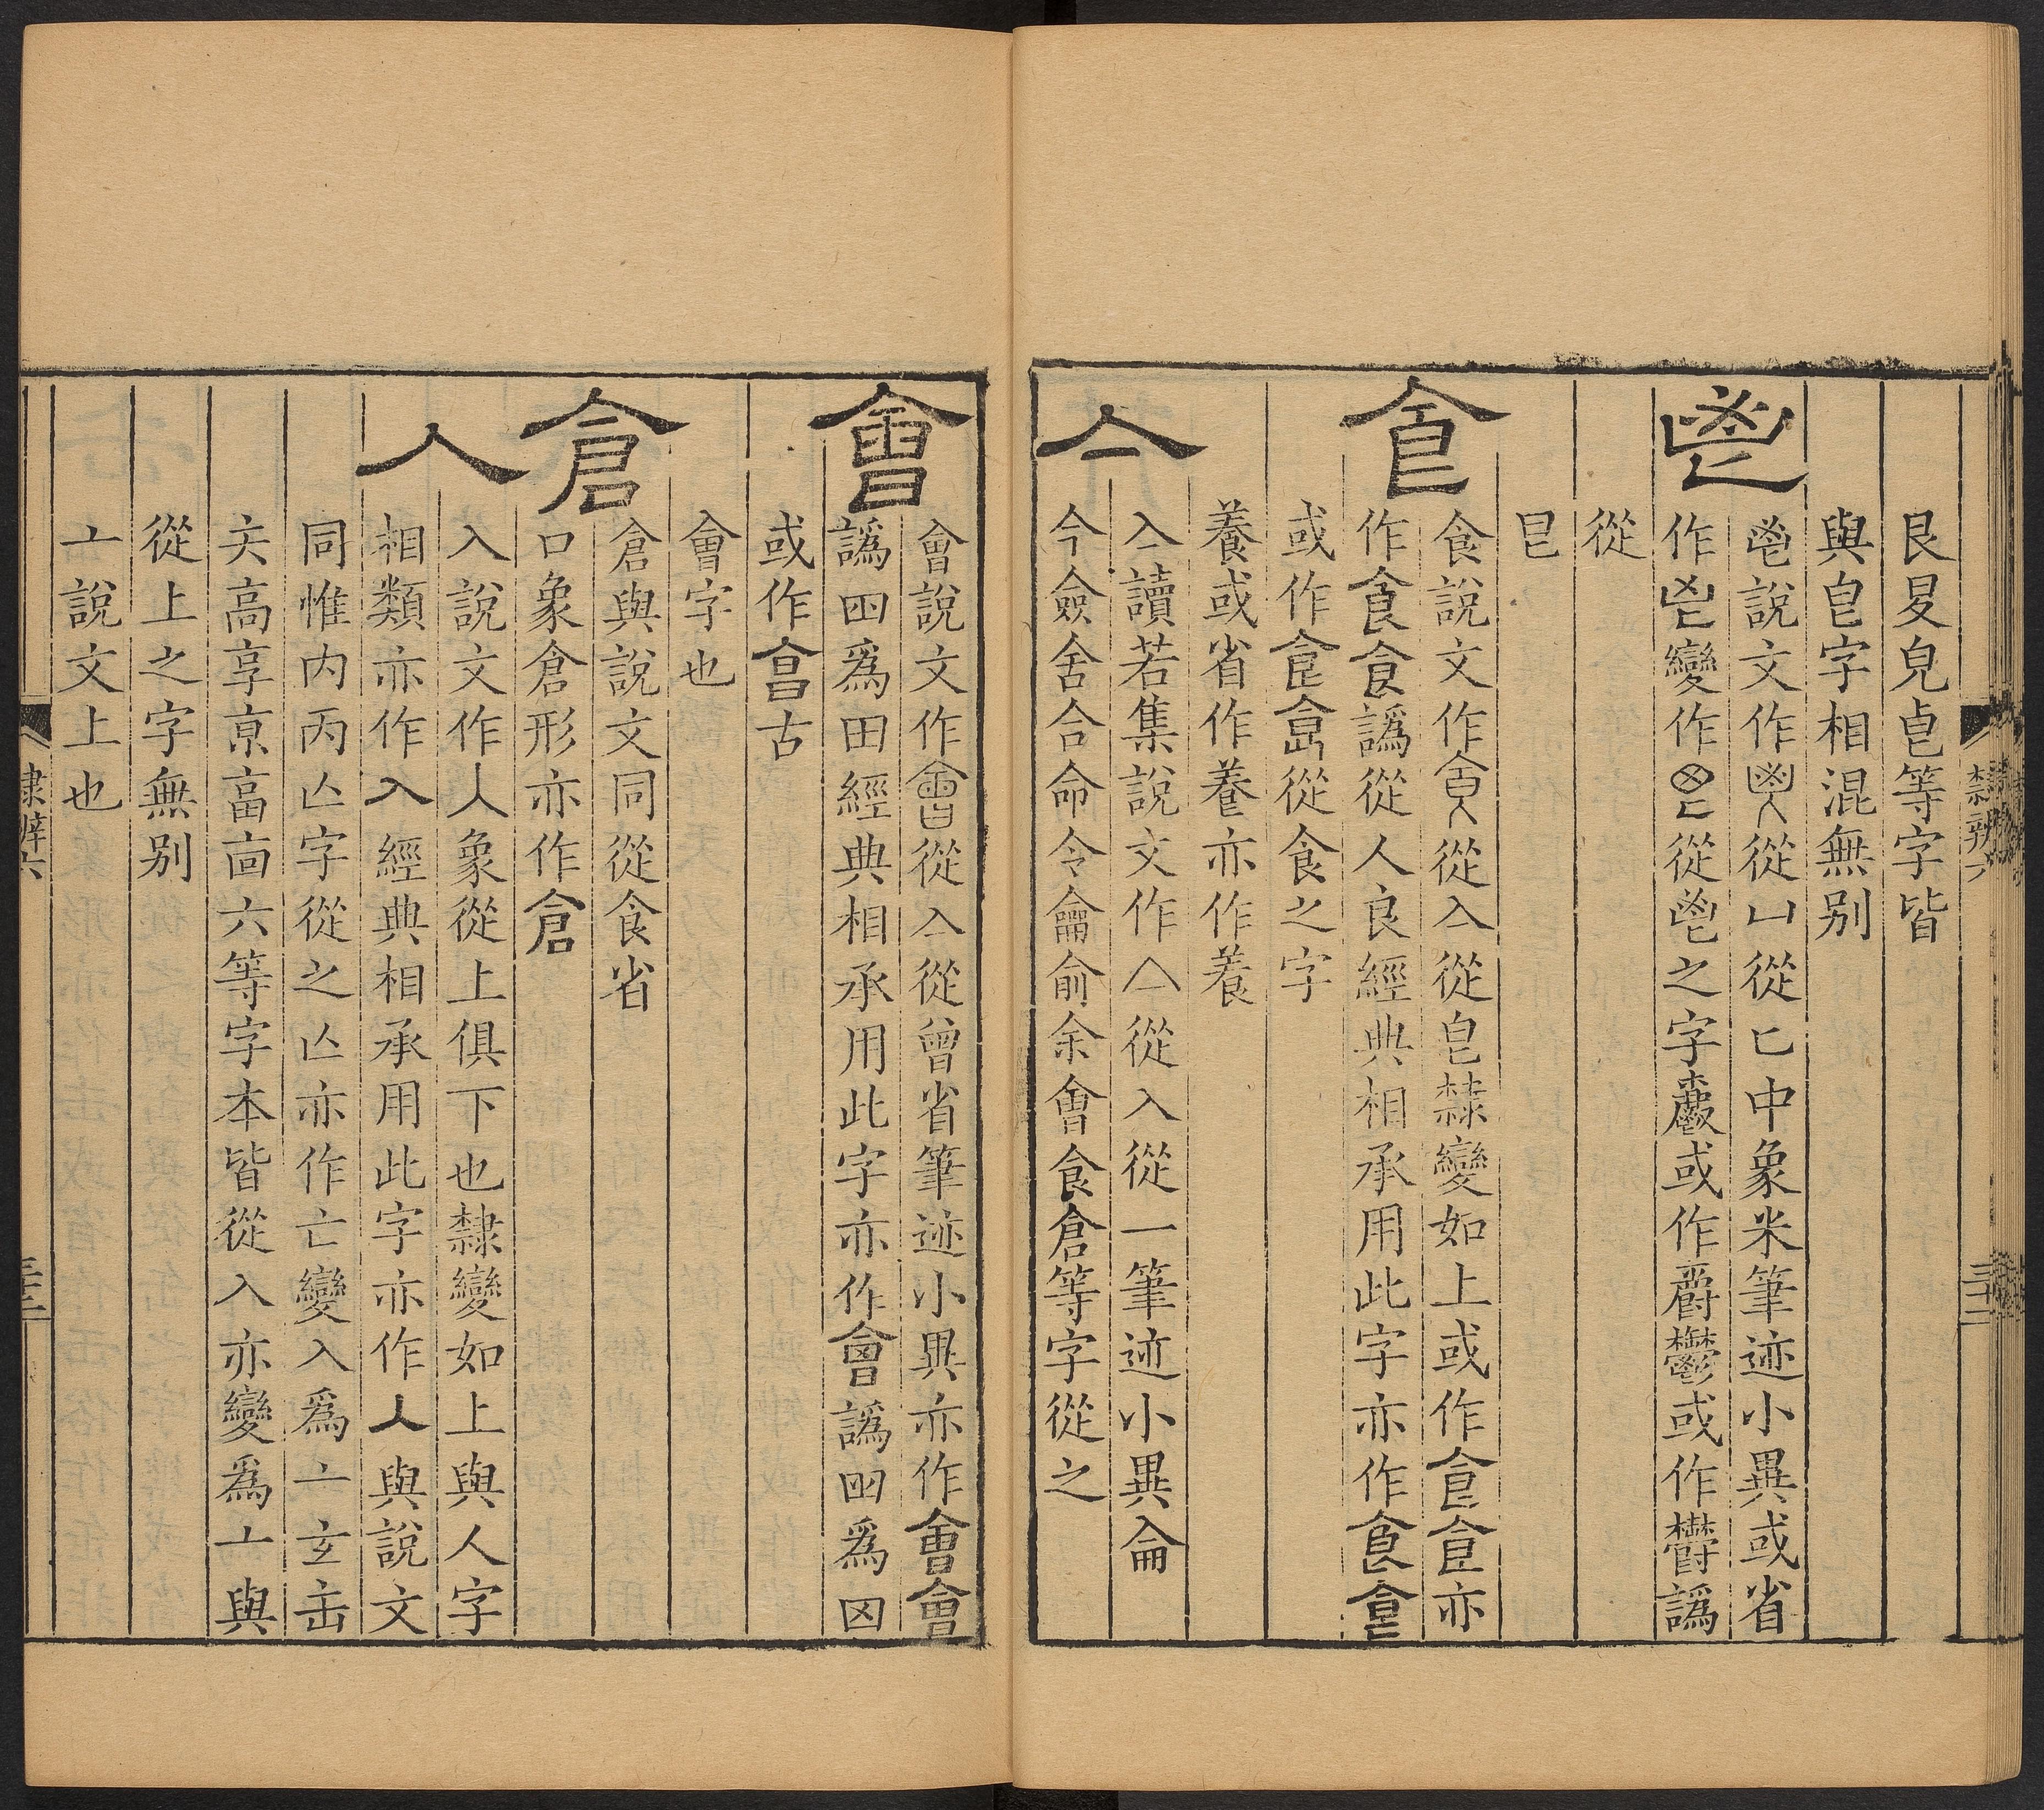 艮㫐皃卓等字皆
與皀字相混無別
鬯
鬯說文作鬯從凵從匕中象米筆迹小異或省
作鬯變作從鬯之字或作爵鬱或作欝譌
從
皀
食
食說文作食從亼從皀隸變如上或作食食亦
作食食譌從人良經典相承用此字亦作食食
或作從食之字
養或省作養亦作養
亼
亼讀若集說文作亼從入從一筆迹小異侖
今僉舍合命令龠俞余會食倉等字從之
會
會說文作會從亼從曾省筆迹小異亦作會會
譌𡆧爲田經典相承用此字亦作會譌爲
或作古
會字也
倉
倉與說文同從食省
口象倉形亦作倉
入
入說文作入象從上俱下也隸變如上與人字
相類亦作入經典相承用此字亦作人與說文
同惟內丙亾字從之亾亦作亡變入爲亠玄缶
高享京亩六等字本皆從入亦變爲亠與
從上之字無別
亠說文上也
隸辨六
三十二